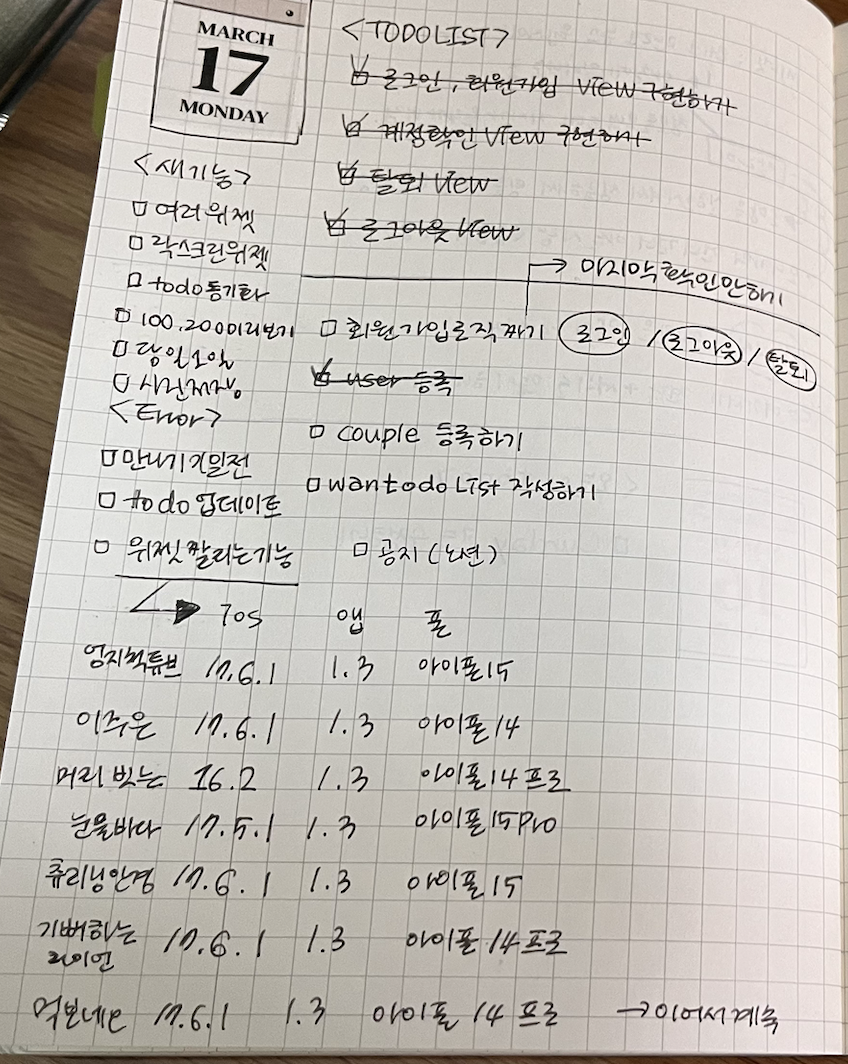 MARCH
17
MONDAY
<TODOLIST>
로그인, 회원가입 view 구현하기
계정확인 View 구현하기
탈퇴 View
로그아웃 View
→ 마지막 확인 안하기
회원가입로직 짜기 로그인 / 로그아웃 / 탈퇴
user 등록
couple 등록하기
wantodo List 작성하기
공지 (노션)
<새기능>
여러위젯
락스크린위젯
todo동기화
100,200미리보기
당일1일
사진저장
<Error>
만나기 전
todo 업데이트
위젯 짤리는기능
IOS 앱 폰
엄지척튜브 17.6.1 1.3 아이폰15
이주은 17.6.1 1.3 아이폰14
머리 빗는 16.2 1.3 아이폰14 프로
눈물바다 17.5.1 1.3 아이폰15pro
츄리닝안경 17.6.1 1.3 아이폰 15
기뻐하는 라이언 17.6.1 1.3 아이폰 14 프로
17.6.1 1.3 아이폰 14 프로 → 이어서계속